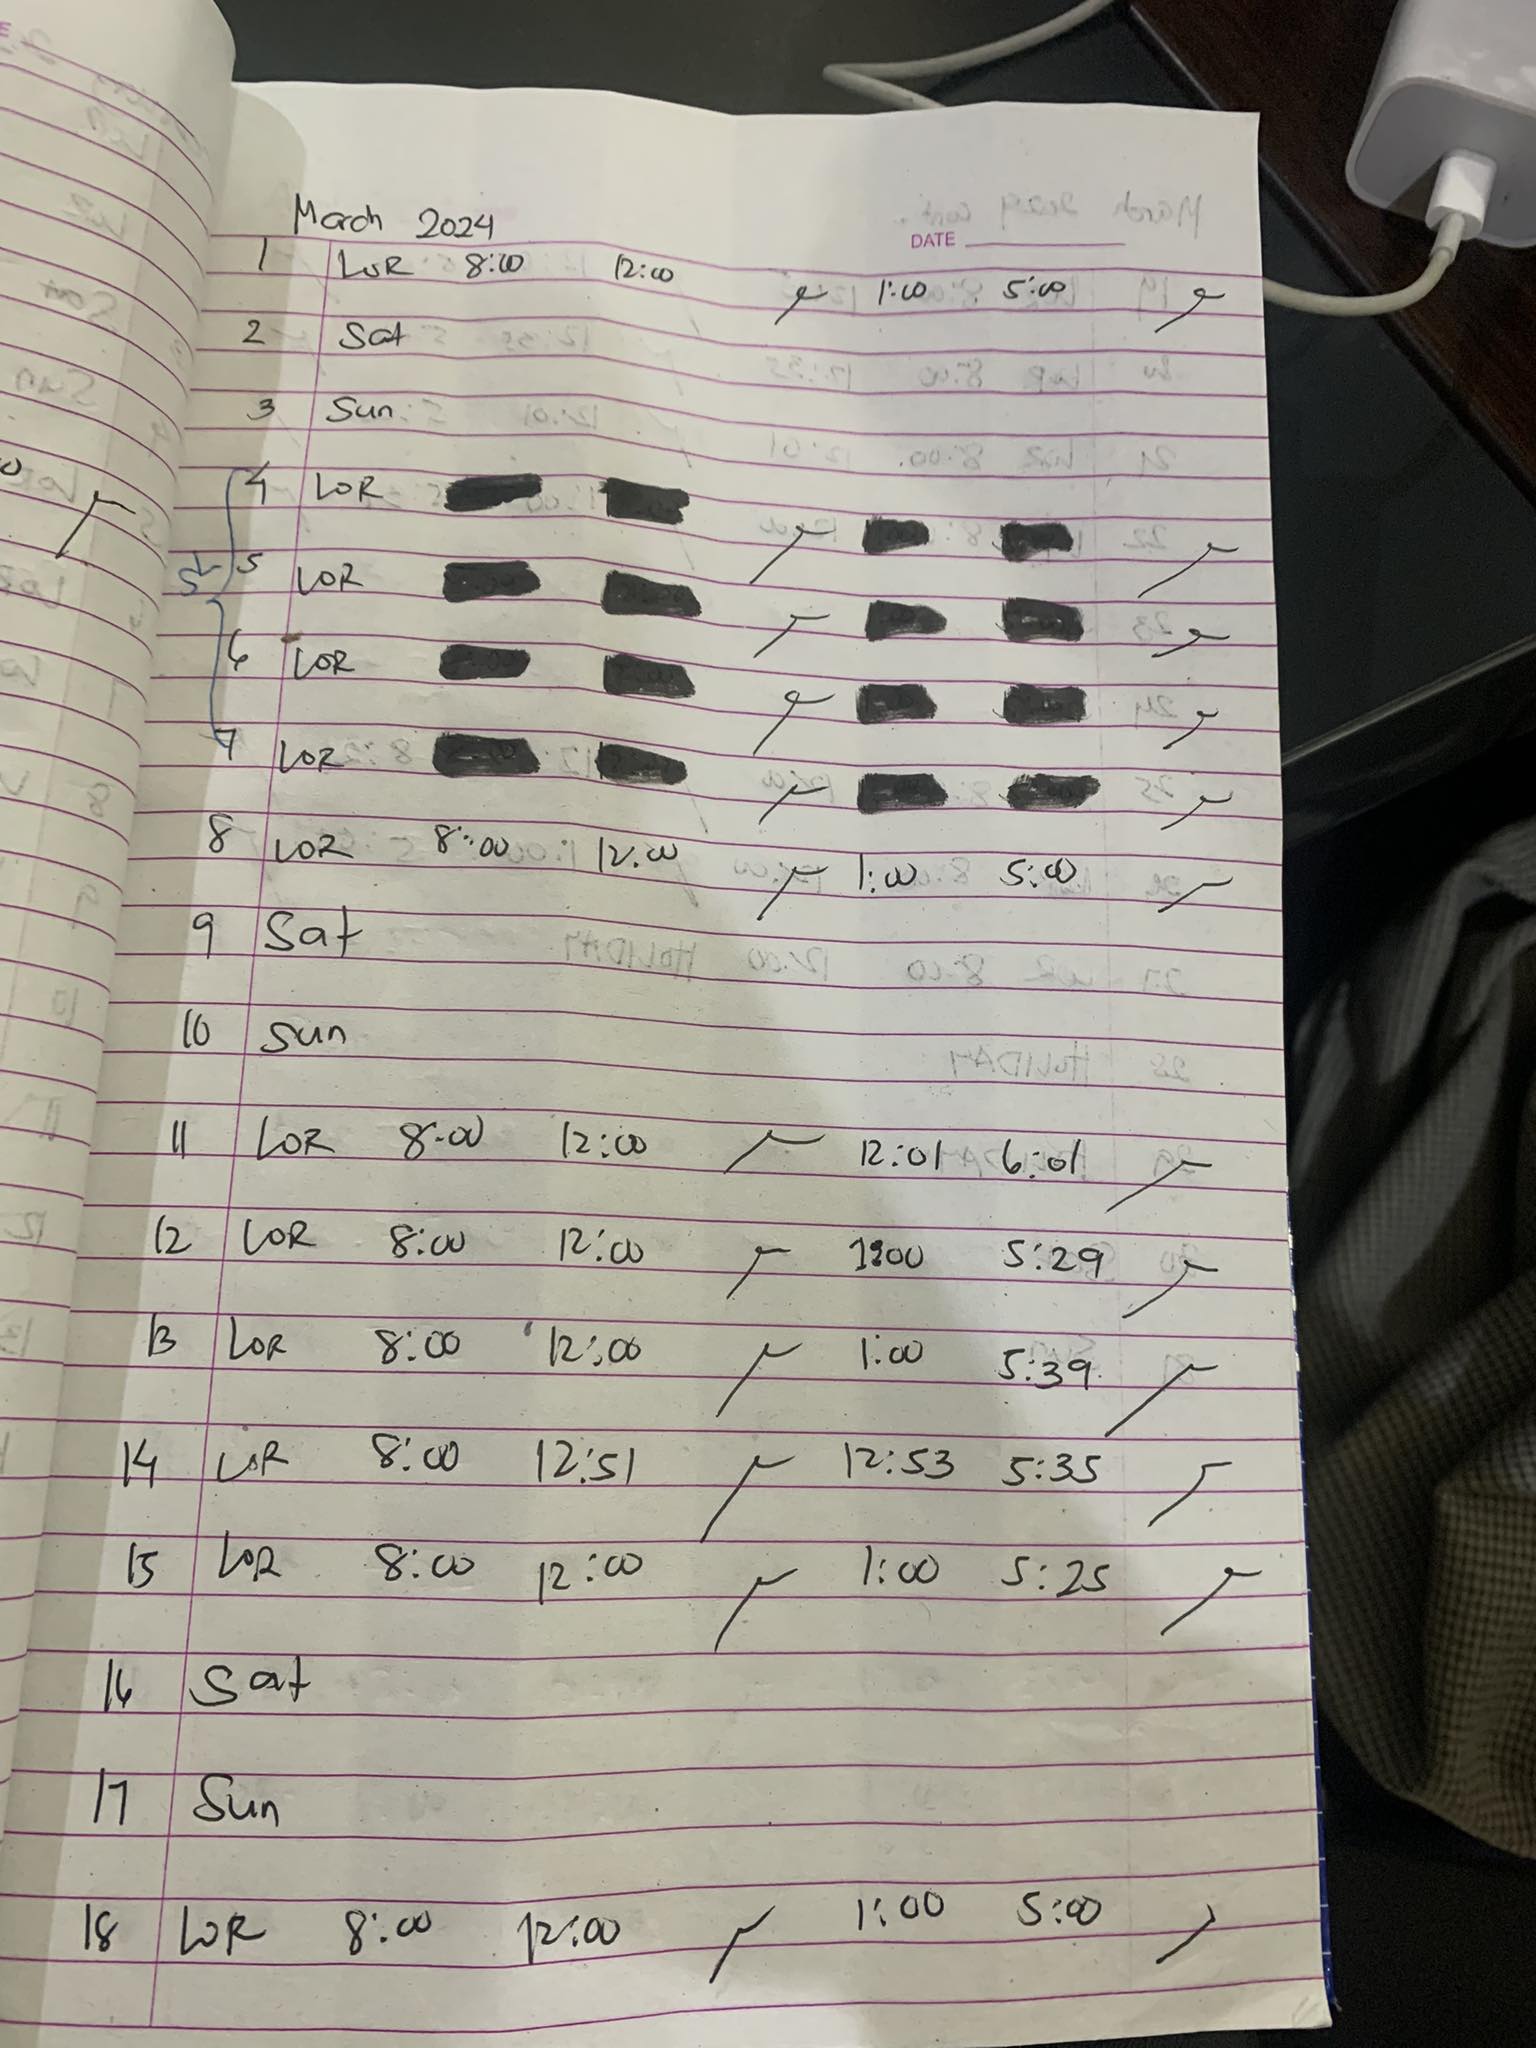 March 2024
DATE
1 LOR 8:00 12:00 1:00 5:00
2 Sat
3 Sun
4 LOR
5 LOR
6 LOR
7 LOR
8 LOR 8:00 12:00 1:00 5:00
9 Sat
10 Sun
11 LOR 8:00 12:00 12:01 6:01
12 LOR 8:00 12:00 1:00 5:29
13 LOR 8:00 12:00 1:00 5:39
14 LOR 8:00 12:51 12:53 5:35
15 LOR 8:00 12:00 1:00 5:25
16 Sat
17 Sun
18 LOR 8:00 12:00 1:00 5:00